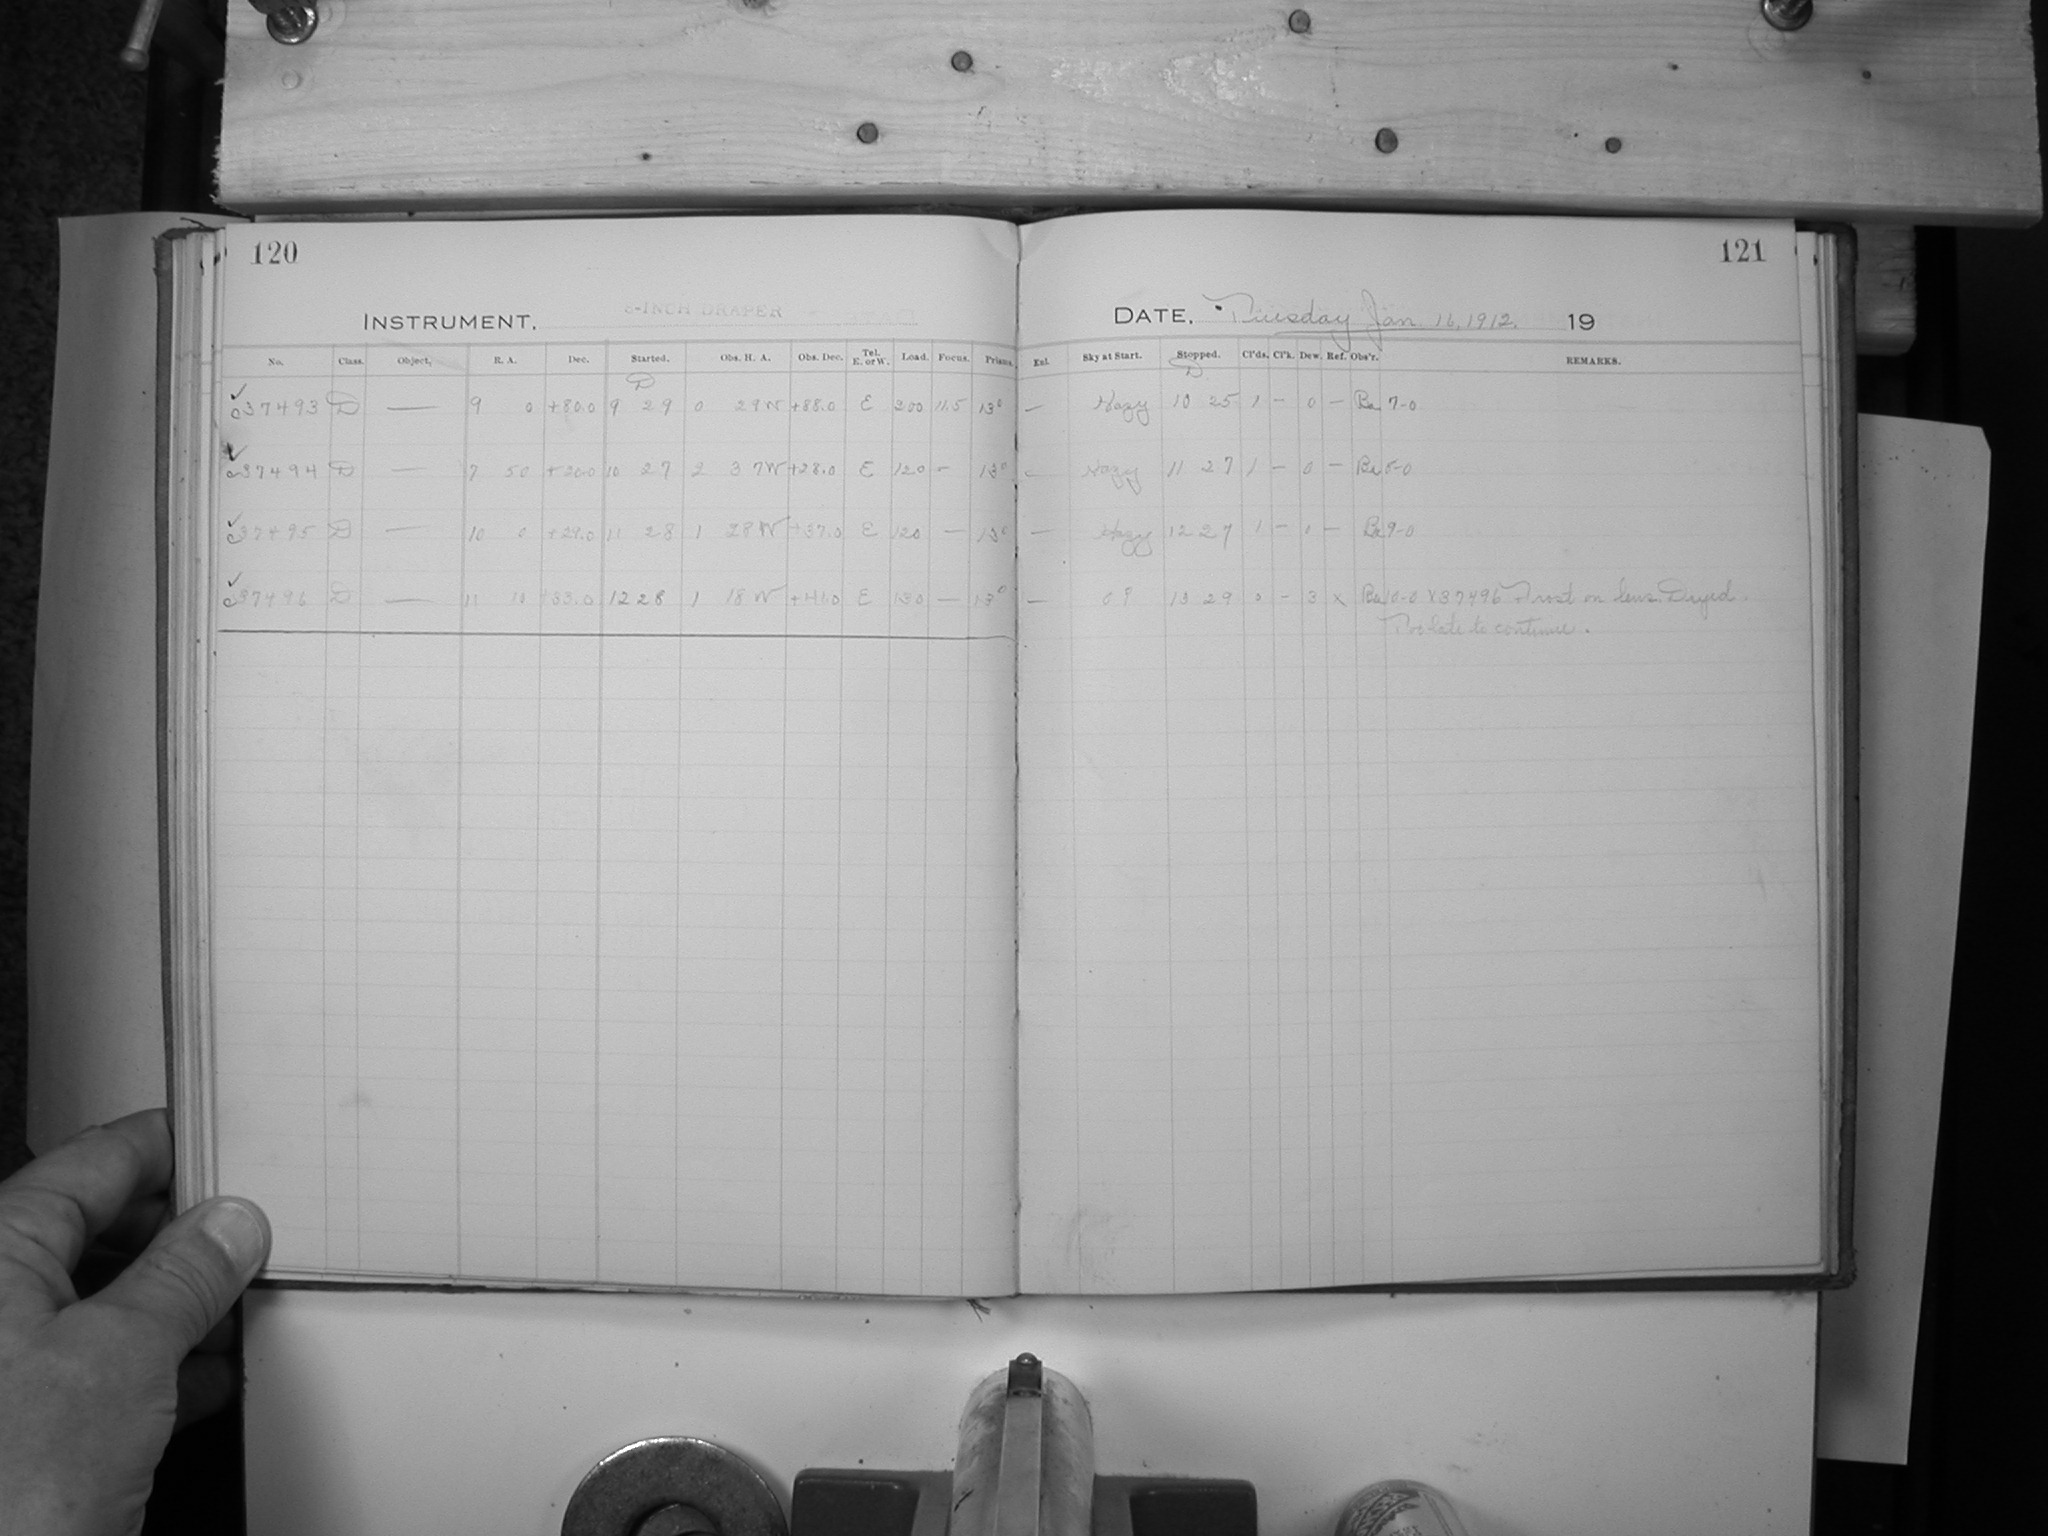 120
121
INSTRUMENT. 8-INCH DRAPER
DATE. Tuesday Jan. 16, 1912. 19
No. Class. Object. R. A. Dec. Started. Obs. H. A. Obs. Dec. Tel. E. or W. Load. Focus. Prisms. Enl. Sky at Start. Stopped. Cl'ds. Cl'k. Dew. Ref. Obs'r. REMARKS.
D D
c37493 D — 9 0 +80.0 9 29 0 29W +88.0 E 11.5 13° — Hazy 10 25 1 – 0 – Ba 7-0
c37494 D — 7 50 +20.0 10 27 2 37W +28.0 E 120 – 13° — Hazy 11 27 1 – 0 – Ba 8-0
c37495 D — 10 0 +29.0 11 28 1 28W +37.0 E 120 — 13° — Hazy 12 27 1 – 0 – Ba 9-0
c37496 D — 11 10 +33.0 12 28 1 18W +41.0 E — 13° — 13 29 0 – 3 x Ba 10-0 X37496 Frost on lens. Dryed.
Too late to continue.